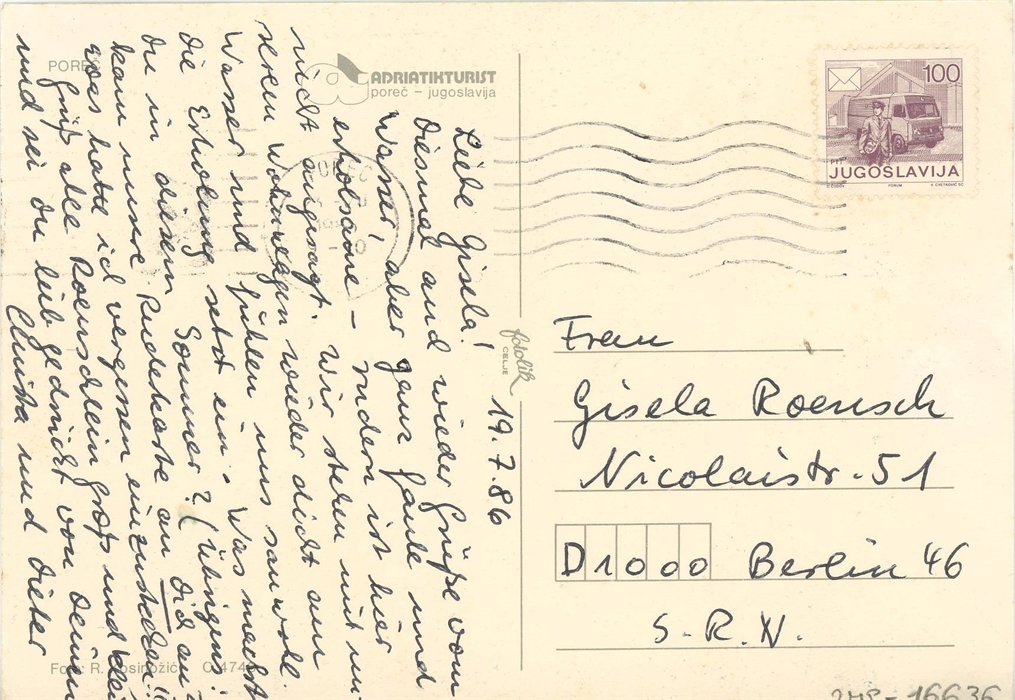 POREČ
ADRIATIKTURIST
poreč – jugoslavija
19.7.86
Liebe Gisela!
Diesmal auch wieder Grüße vom
Wasser, aber ganz faule und
erholsame – rudern ist hier
nicht angesagt. Wir stehen mit un-
serem Wohnwagen wieder dicht am
Wasser und fühlen uns sauwohl.
Die Erholung setzt ein. Was machst
du in diesem Sommer? (Übrigens:
kam unsre Ruderkarte an Dich an?
Was hatte ich vergessen einzustecken!
Grüß alle Roenschlein groß und klein
und sei du lieb gedrückt von Deinen
Christa und Dieter
fotolik
CELJE
100
PTT
JUGOSLAVIJA
FORUM
Frau
Gisela Roensch
Nicolaistr. 51
D1000 Berlin 46
S.R.N.
Foto: R. Kosinožić C 474
16636